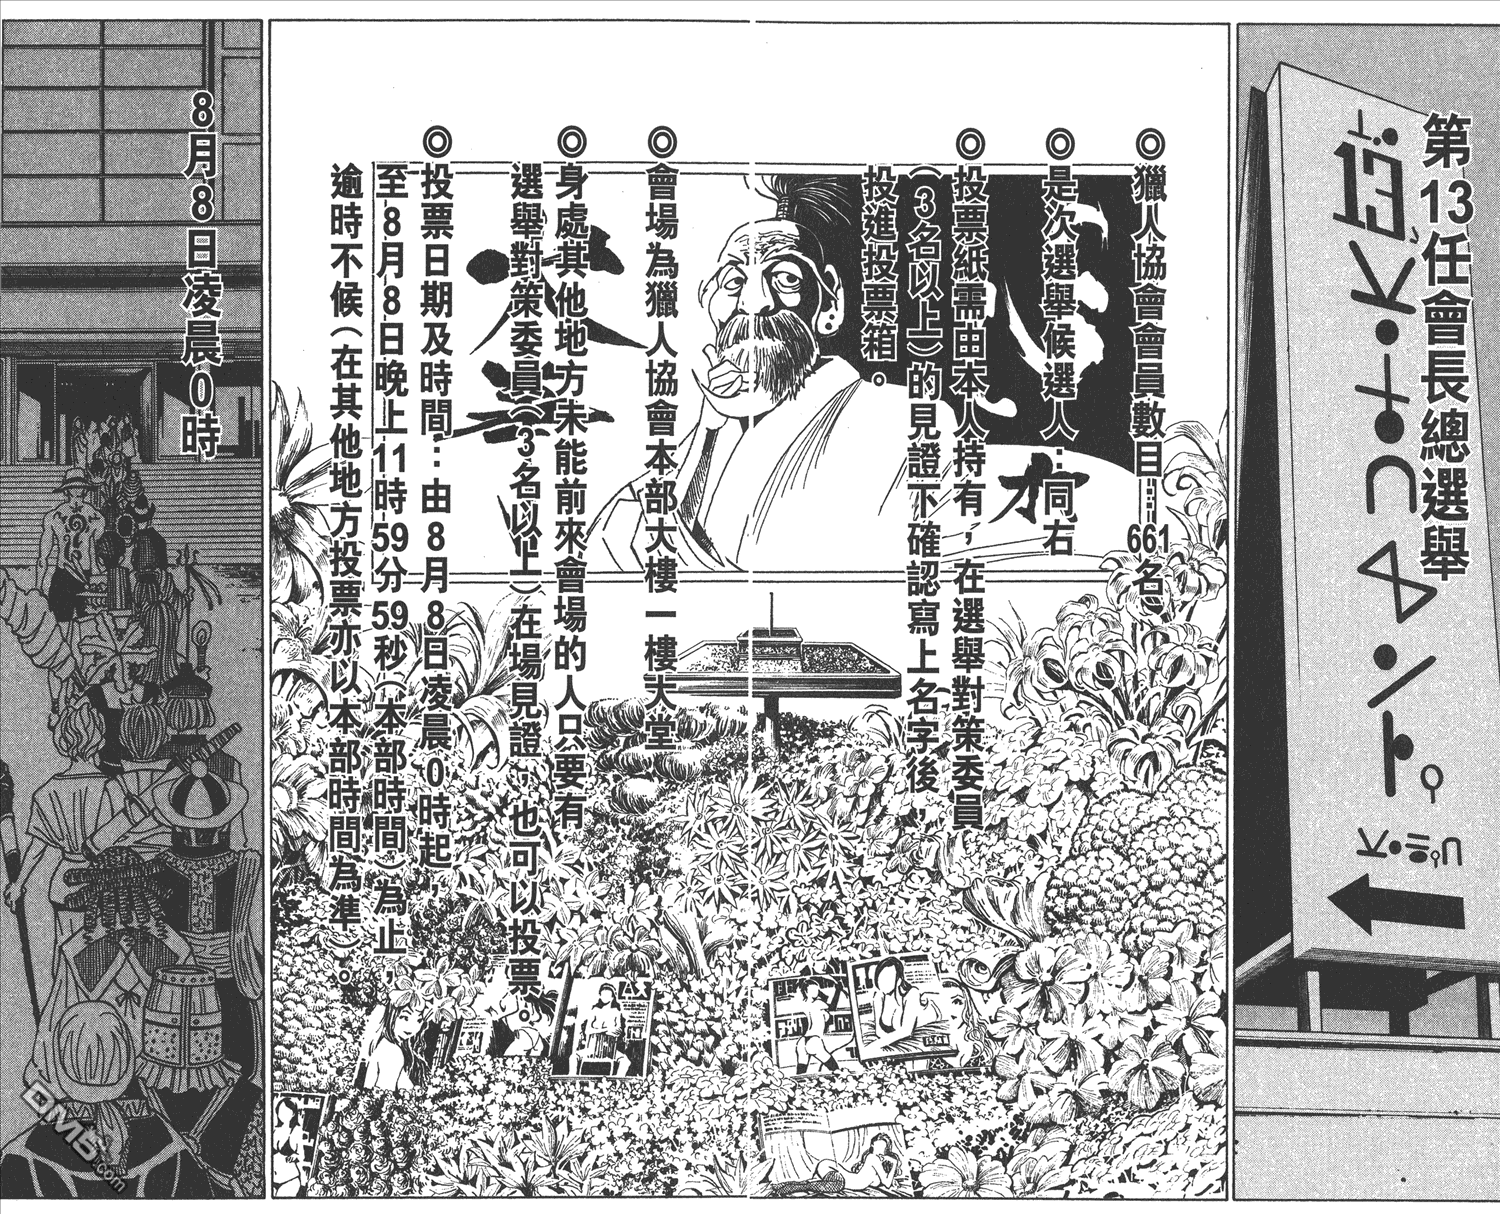 第13任會長總選舉
◎獵人協會會員數目…661名
◎是次選舉候選人：同右
◎投票紙需由本人持有，在選舉對策委員
（3名以上）的見證下確認寫上名字後，
投進投票箱。
◎會場為獵人協會本部大樓一樓大堂
◎身處其他地方未能前來會場的人只要有
選舉對策委員（3名以上）在場見證，也可以投票。
◎投票日期及時間：由8月8日凌晨0時起，
至8月8日晚上11時59分59秒（本部時間）為止，
逾時不候（在其他地方投票亦以本部時間為準）。
8月8日凌晨0時
DM5.com